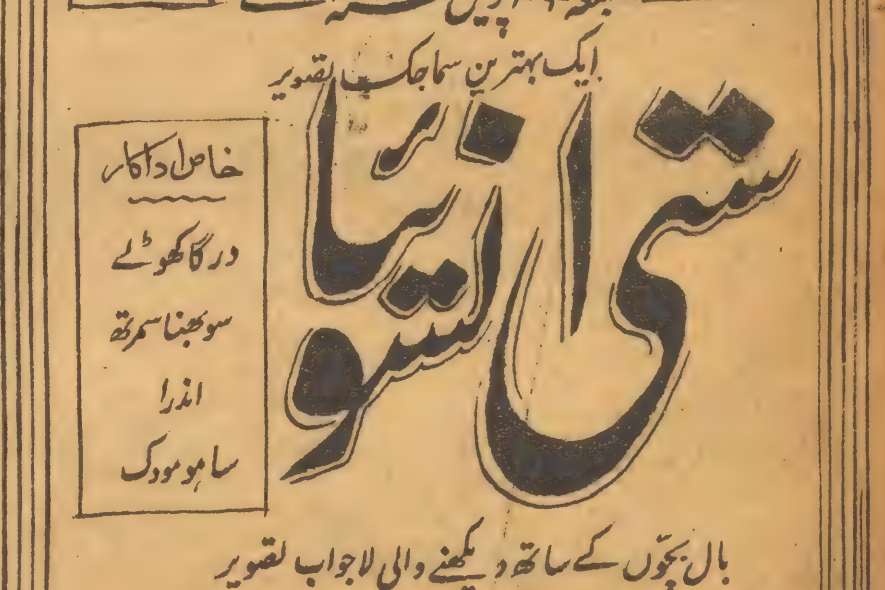 اپریل
ایک بہترین سماجک تصویر
ستی انسویا
خاص اداکار
درگا کھوٹے
سوبھنا سمرتھ
اندرا
ساہو مودک
بال بچّوں کے ساتھ دیکھنے والی لاجواب تصویر